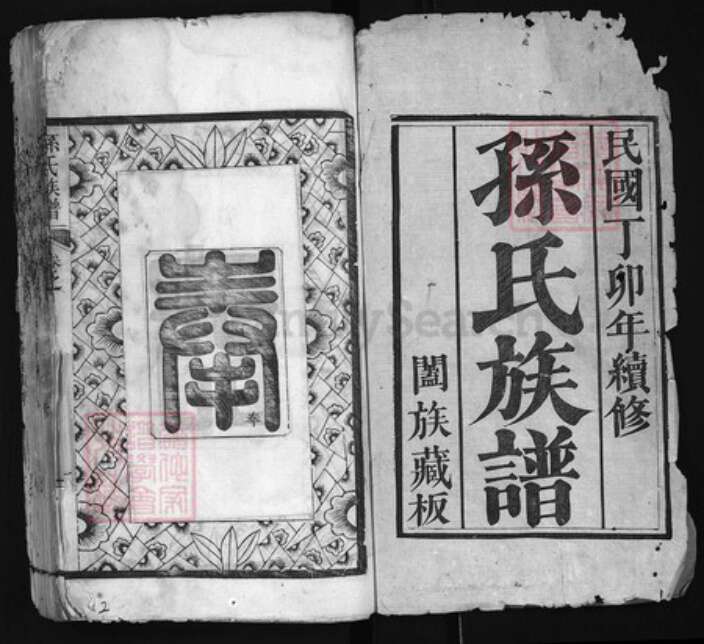 民國丁卯年續修
孫氏族譜
闔族藏板
奉
奉
孫氏族譜
2